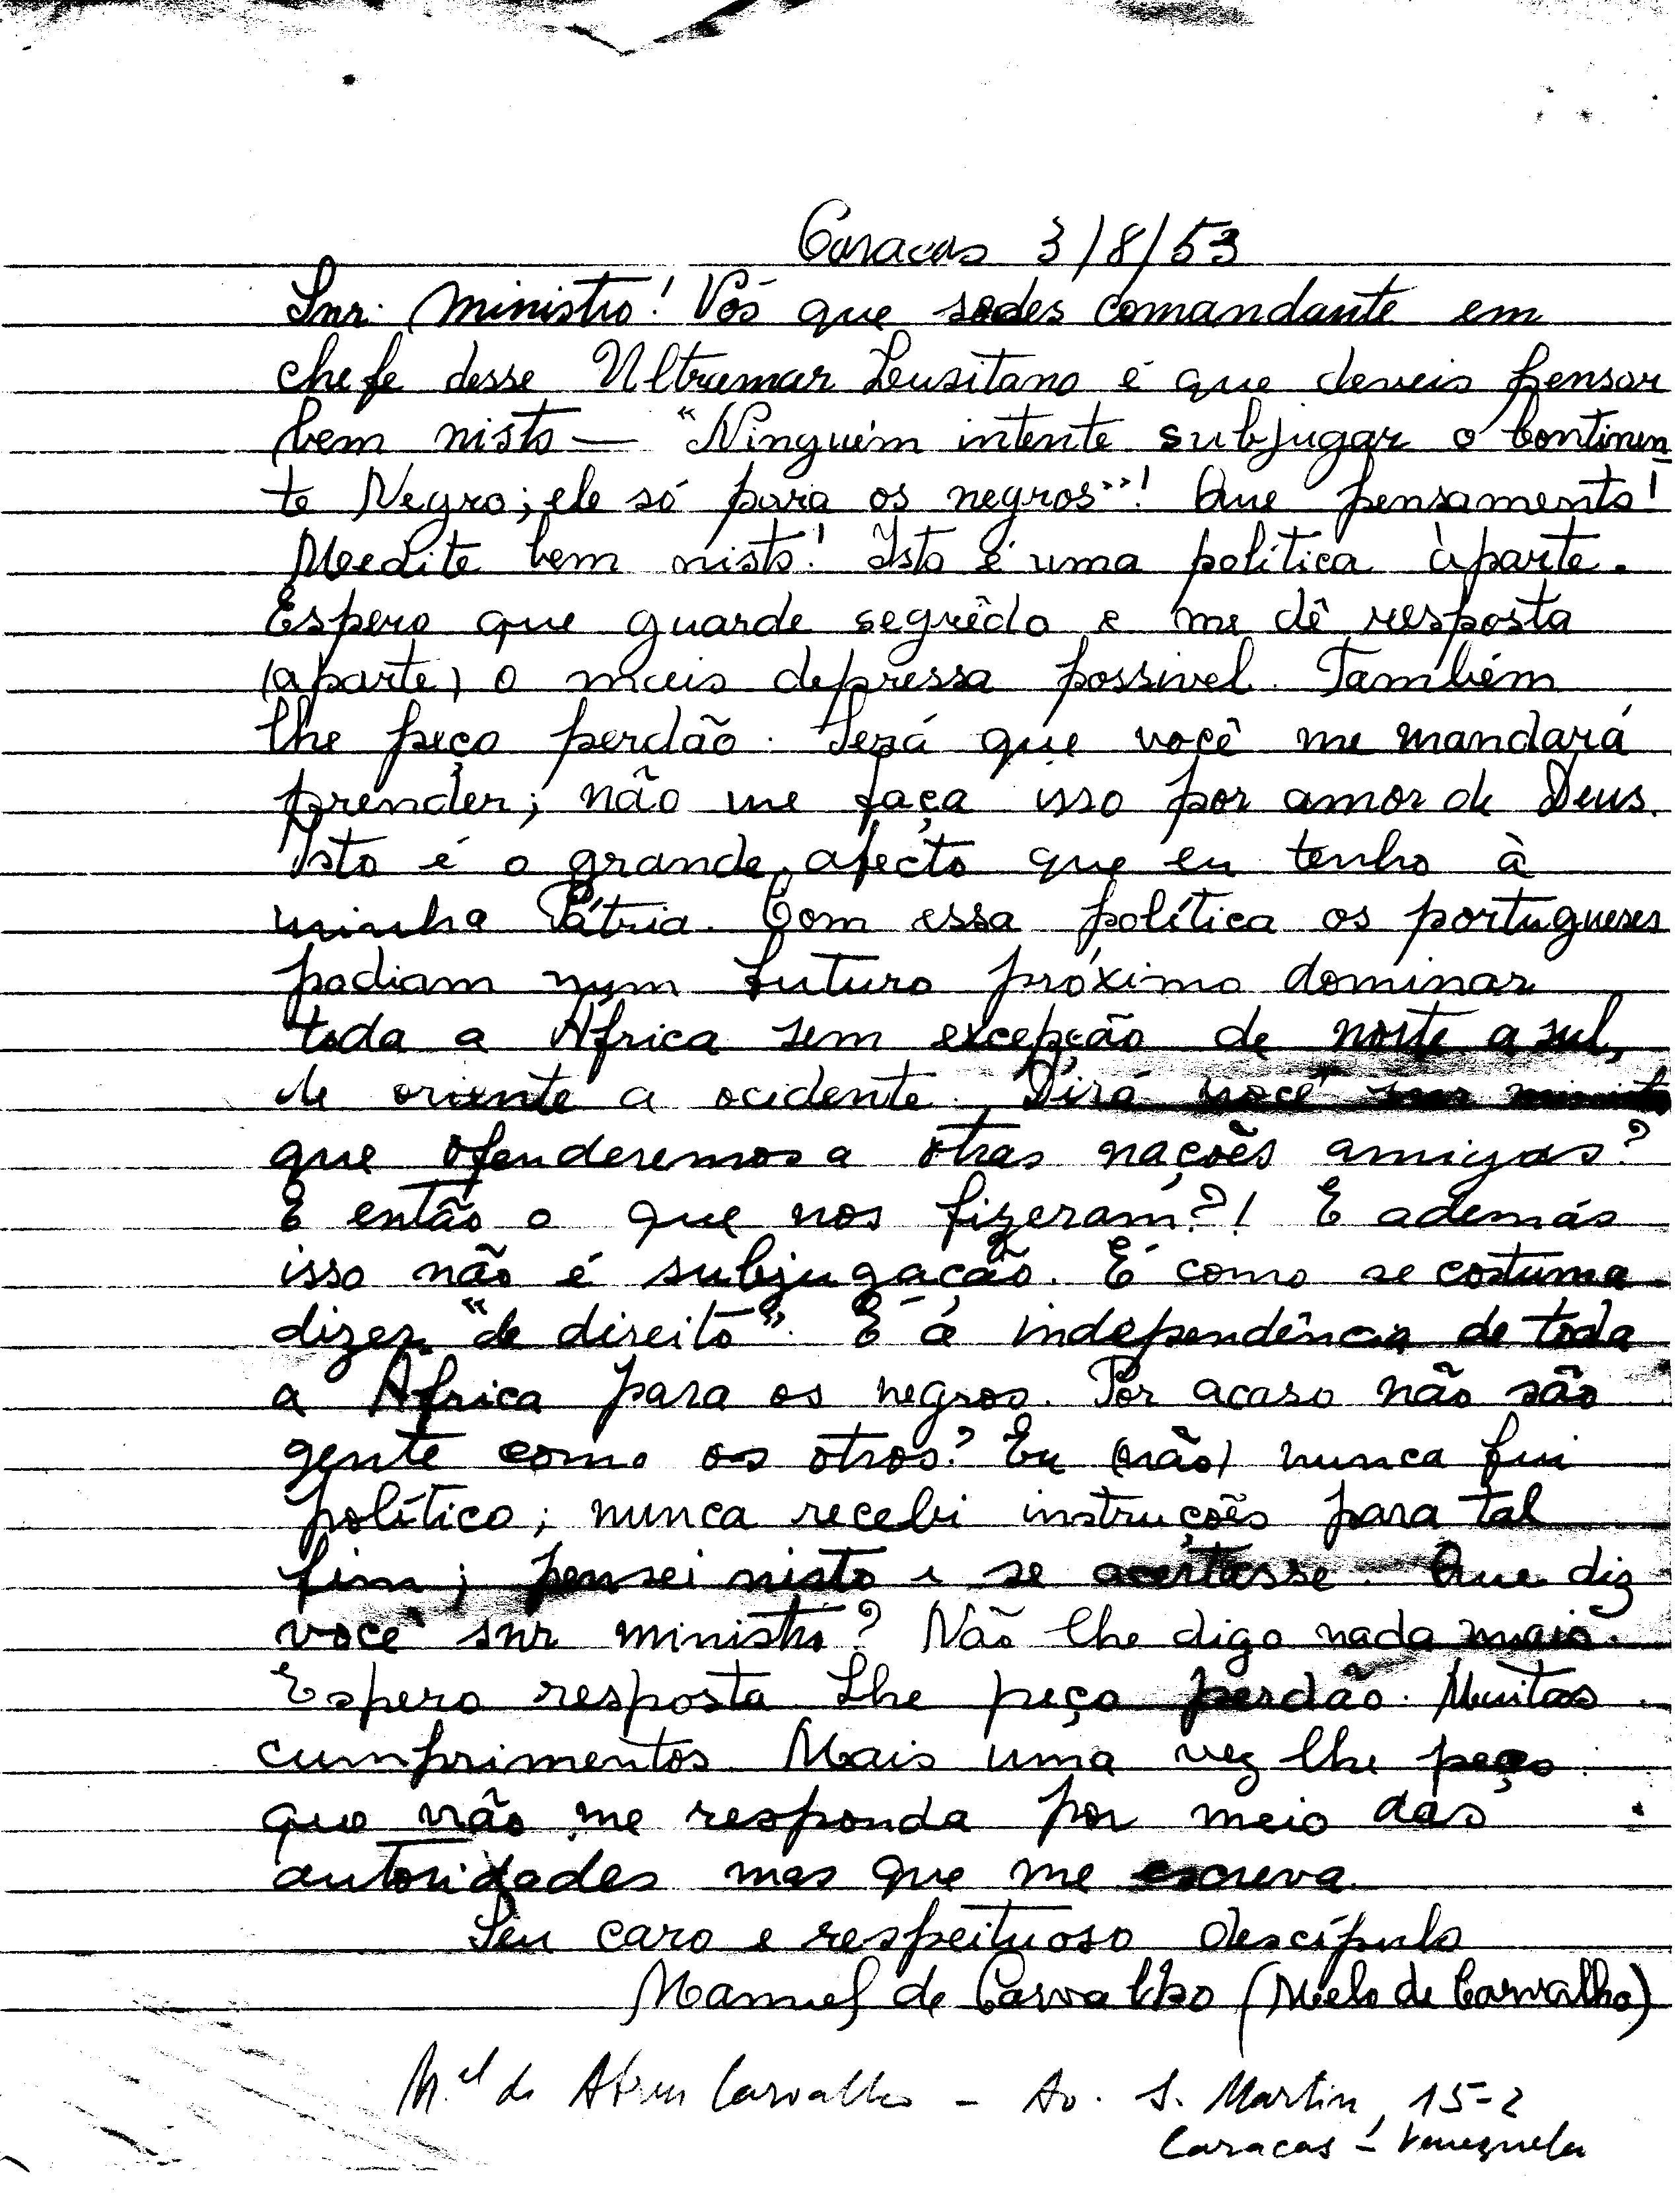 Caracas 3/8/53
Snr. Ministro! Vós que sodes comandante em
chefe desse Ultramar Lusitano é que deveis pensar
bem nisto — "Ninguém intente subjugar o Continen
te Negro; ele só para os negros"! Que pensamento!
Medite bem nisto! Isto é uma política àparte.
Espero que guarde segrêdo e me dê resposta
(aparte) o mais depressa possivel. Também
lhe peço perdão. Será que você me mandará
prender; não me faça isso por amor de Deus.
Isto é o grande afecto que eu tenho à
minha Pátria. Com essa política os portugueses
podiam num futuro próximo dominar
toda a África sem excepção de norte a sul,
de oriente a ocidente. Dirá você snr ministro
que ofenderemos a otras nações amigas?
E então o que nos fizeram?! E además
isso não é subjugação. É como se costuma
dizer "de direito". É a independência de toda
a África para os negros. Por acaso não são
gente como os otros? Eu (não) nunca fui
político; nunca recebi instruções para tal
fim; pensei nisto e se acertasse. Que diz
você snr ministro? Não lhe digo nada mais.
Espero resposta. Lhe peço perdão. Muitos
cumprimentos. Mais uma vez lhe peço
que não me responda por meio das
autoridades mas que me escreva.
Seu caro e respeituoso descípulo
Manuel de Carvalho (Melo de Carvalho)
M.el de Abreu Carvalho - Av. S. Martin, 15-2
Caracas - Venezuela